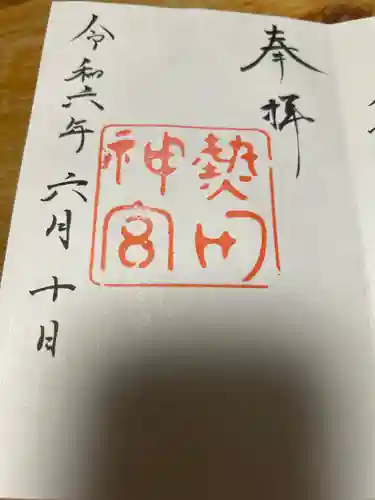 奉拝
熱田
神宮
令和六年六月十日